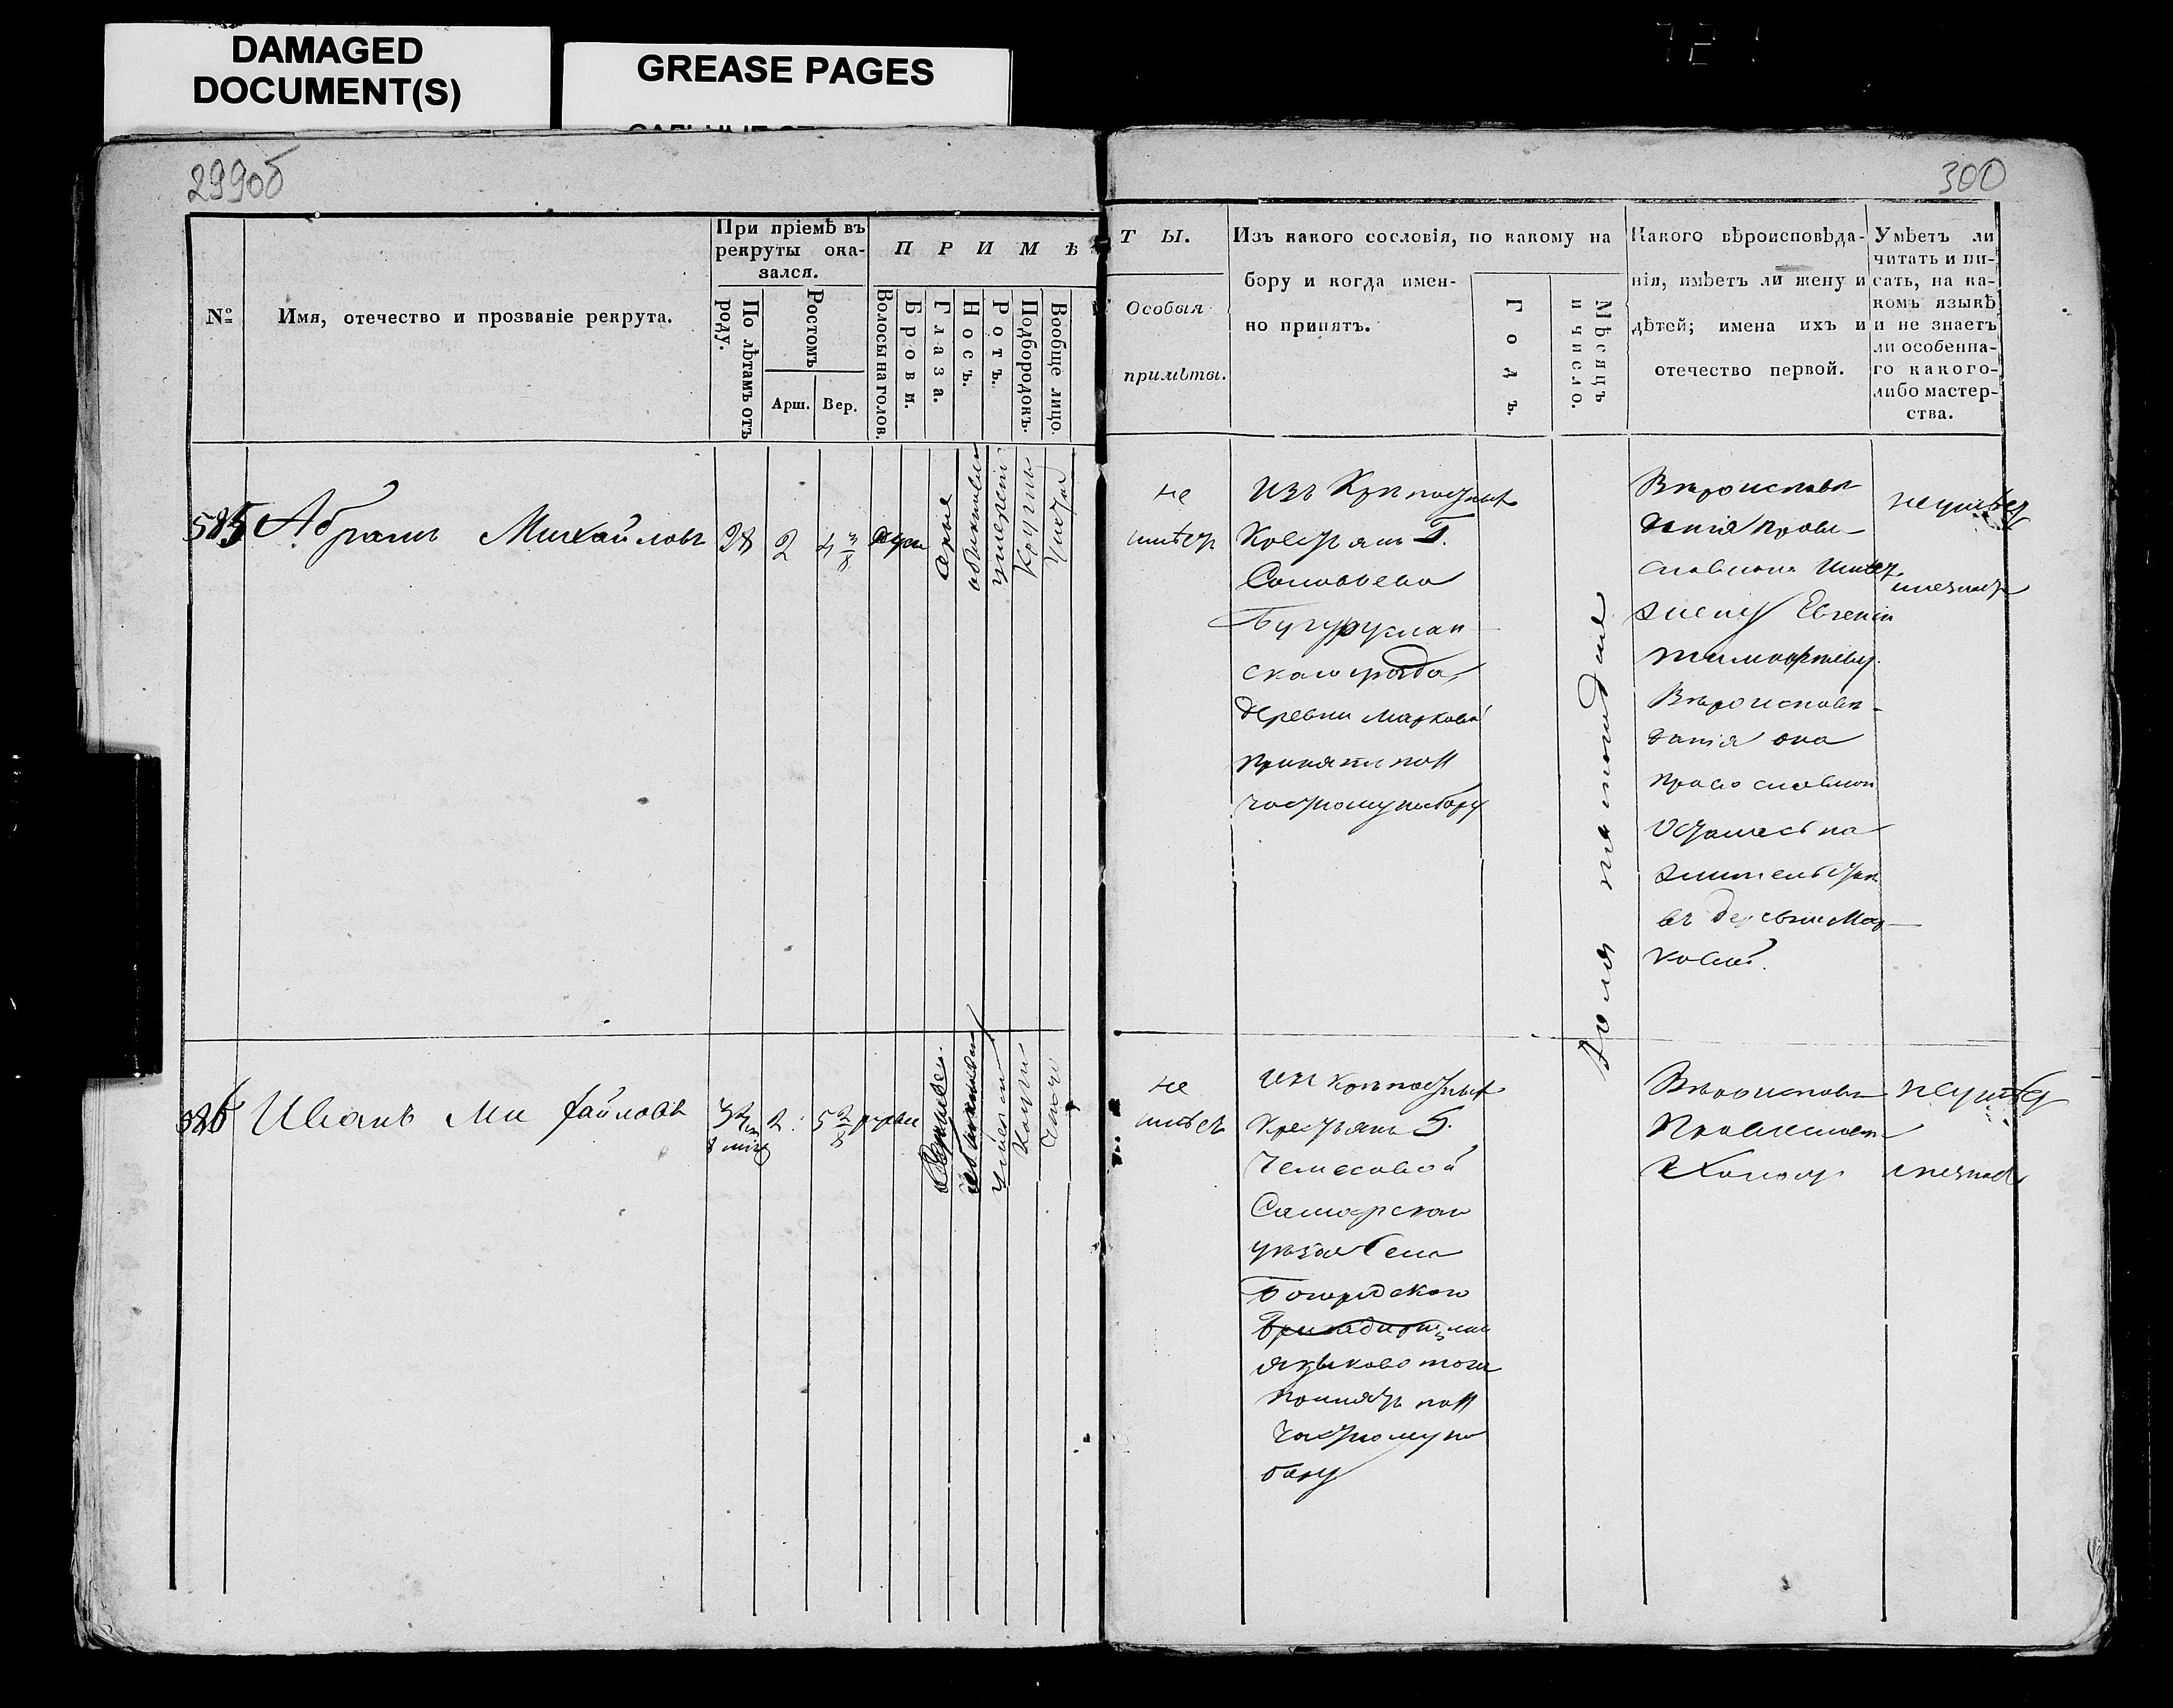 DAMAGED
DOCUMENT(S)
GREASE PAGES
299об
300
№
Имя, отечество и прозваніе рекрута.
При пріемѣ въ
рекруты ока-
зался.
По лѣтамъ отъ
роду.
Ростомъ
Арш.
Вер.
ПРИМѢ
Волосы на голов.
Брови.
Глаза.
Носъ.
Ротъ.
Подбородокъ.
Вообще лицо.
ТЫ.
Особыя
примѣты.
Изъ какого сословія, по какому на
бору и когда имен-
но принятъ.
Годъ.
Мѣсяцъ
и число.
Какого вѣроисповѣда-
нія, имѣетъ ли жену и
дѣтей; имена ихъ и
отечество первой.
Умѣетъ ли
читать и пи-
сать, на ка-
комъ языкѣ
и не знаетъ
ли особенна-
го какого-
либо мастер-
ства.
585
Абрамъ Михайловъ
28
2
4 3/8
русы
серые
обыкновен
умерен
Круглы
Чистое
не
имѣетъ
Изъ Крѣпостныхъ
Крестьянъ Г.
Соловьева
Бугуруслан
скаго уѣзда
деревни Марковой
Принятъ по
частному набору
Вѣроисповѣ
данія Право-
славнаго Имѣетъ
жену Евгенія
Вѣроисповѣ-
данія она
православной
Осталась на
жительство
въ деревне Мар
ковой.
неумѣетъ
инезнаетъ
586
Иванъ Михайловъ
2
5 2/8
русые
не
имѣетъ
изъ крѣпостныхъ
Крестьянъ Г.
Чемесовой
Самарскаго
уѣзда Села
Богородского
Языково тожъ
принятъ по
частному на
бору
Вѣроисповѣ
Православн
Холостъ
неумѣетъ
инезнаетъ